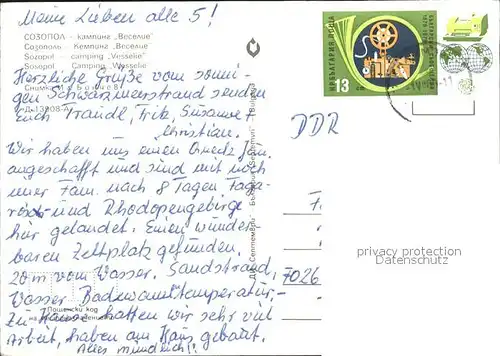 Meine Lieben alle 5!
СОЗОПОЛ – къмпинг "Веселие"
Созополь – Кемпинг "Веселие"
Sozopol – camping "Vesselie"
Sozopol – Camping "Vesselie"
Herzliche Grüße vom sonni-
gen Schwarzmeerstrand senden
Д-13908-А
euch Traudl, Fritz, Susanne &
Christian.
Wir haben uns einen
angeschafft und sind mit noch
einer Fam. nach 8 Tagen
und Rhodopengebirge
hier gelandet. Einen wunder
baren Zeltplatz gefunden.
20 m vom Wasser. Sandstrand,
Wasser Badewannentemperatur,
Пощенски код
Zu Hause hatten wir sehr viel
Arbeit, haben am Haus gebaut.
Alles mündlich!!
НР БЪЛГАРИЯ ПОЩА
13
DDR
7026
privacy protection
Datenschutz